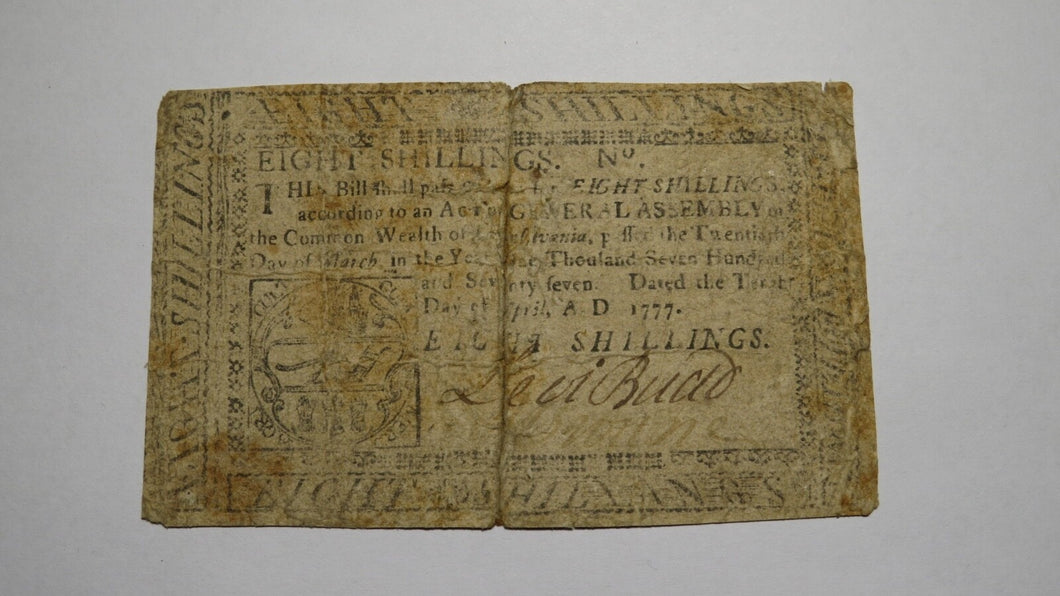 EIGHT SHILLINGS
EIGHT SHILLINGS. Nº.
THIS Bill shall pass for EIGHT SHILLINGS,
according to an ACT of GENERAL ASSEMBLY of
the Common Wealth of Pennsylvania, passed the Twentieth
Day of March, in the Year One Thousand Seven Hundred
and Seventy seven. Dated the Tenth
Day of April, A D 1777.
EIGHT SHILLINGS.
Levi Budd
EIGHT SHILLINGS
SHILLINGS